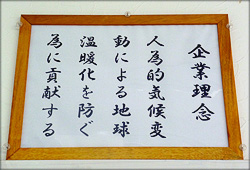 企業理念
人為的気候変
動による地球
温暖化を防ぐ
為に貢献する